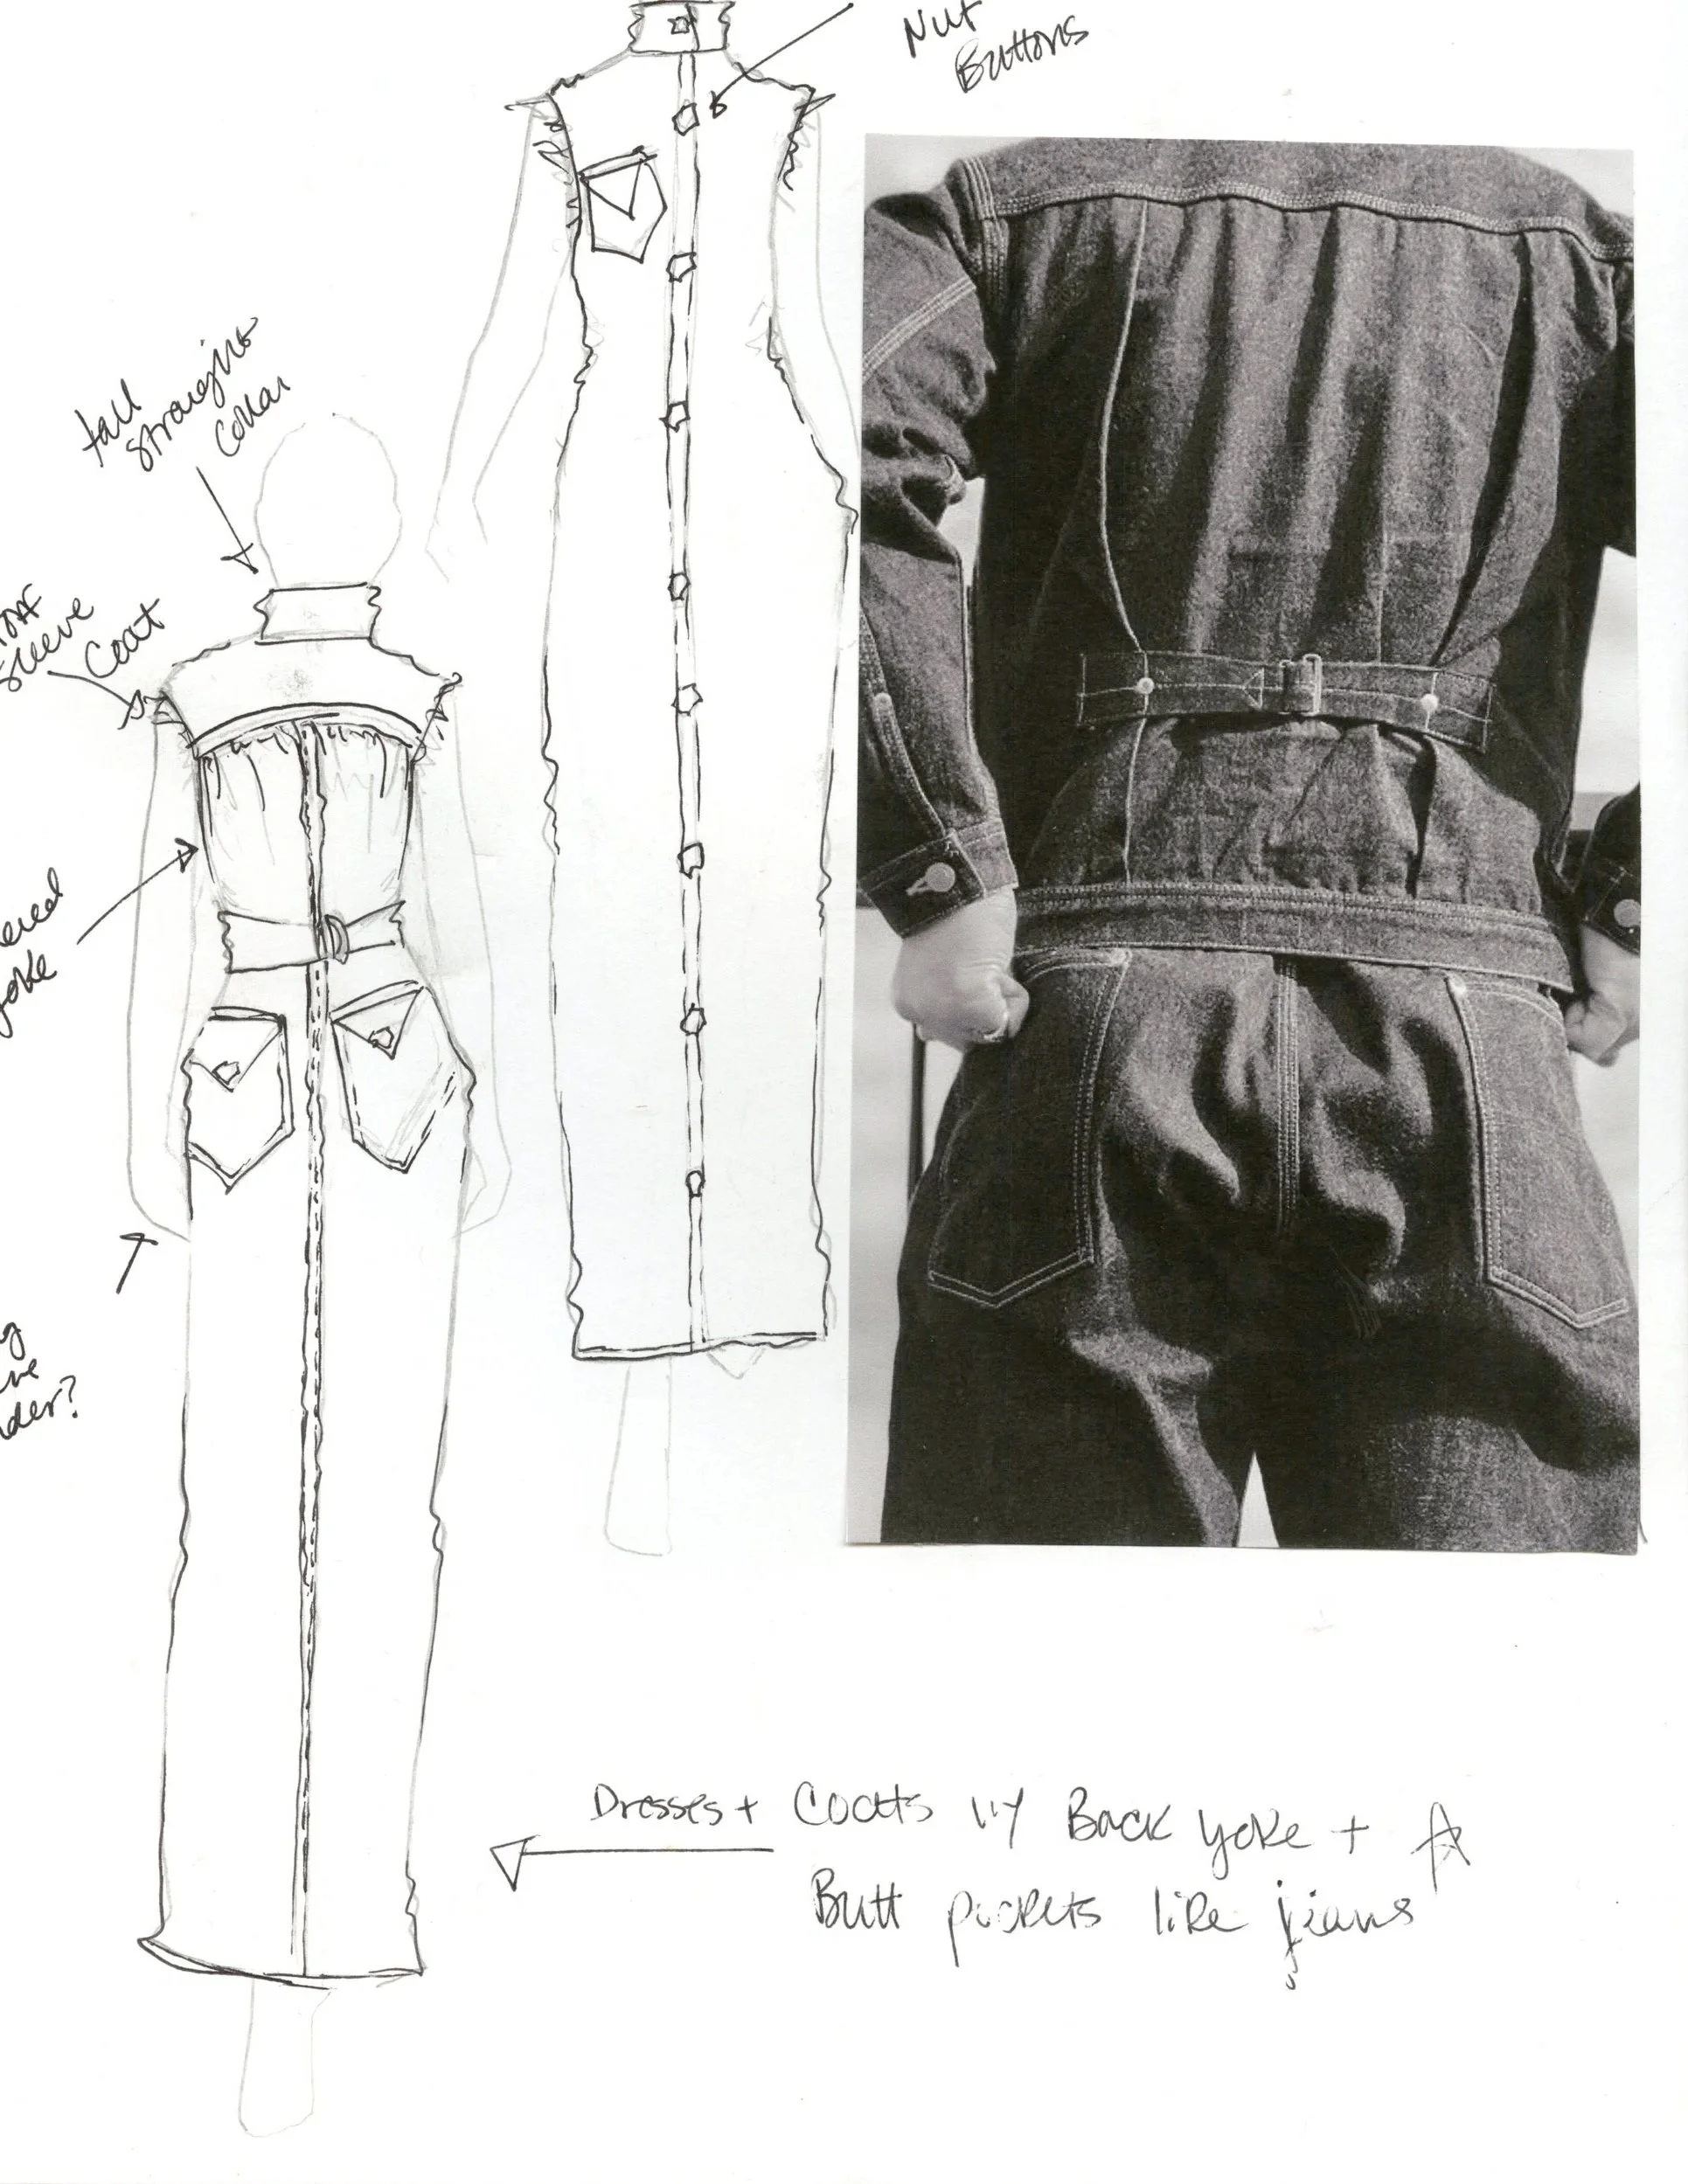 Nut
Buttons
tall
straight
collar
sleeve
Coat
yoke
Dresses + Coats w/ Back yoke +
Butt pockets like jeans